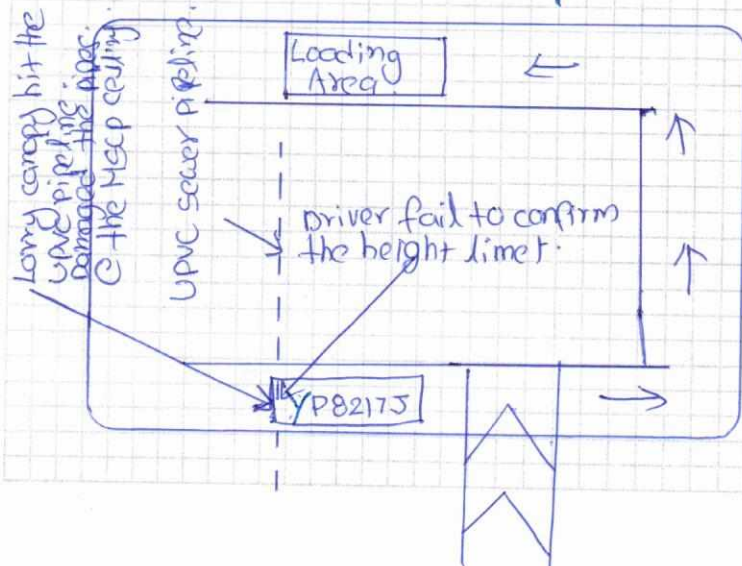 Lorry canopy hit the
UPVC pipeline
Damaged the pipes
@ the MSCP ceiling.
UPVC sewer pipeline.
Loading
Area
Driver fail to confirm
the height limet.
YP8217J